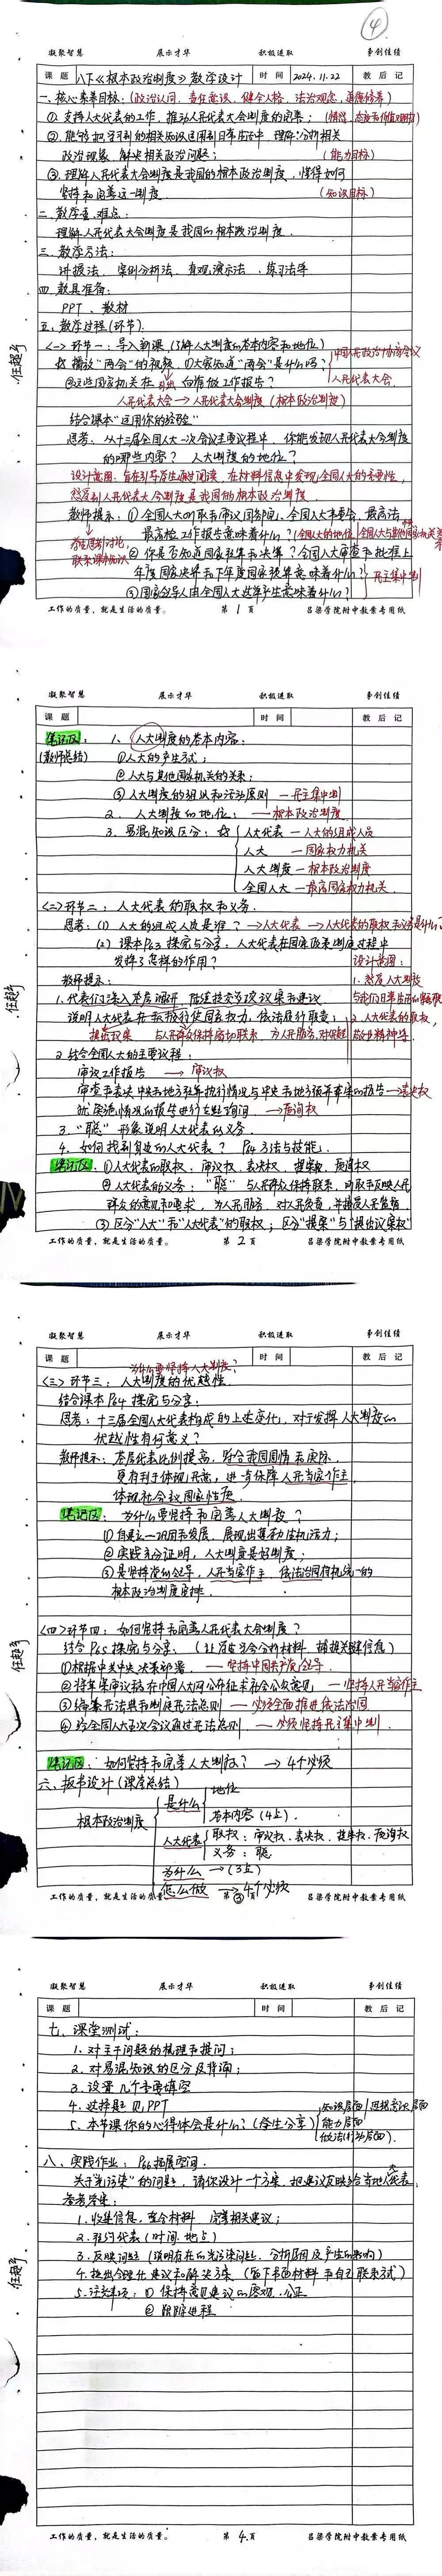 ④
凝聚智慧 展示才华 积极进取 争创佳绩
课题 八下《根本政治制度》教学设计 时间 2024.11.22 教后记
一、核心素养目标：(政治认同、责任意识、健全人格、法治观念、道德修养)
① 支持人大代表的工作，推动人民代表大会制度的完善；(情感、态度与价值观目标)
②. 能够把学到的相关知识运用到日常生活中，理解、分析相关
政治现象，解决相关政治问题； (能力目标)
③. 理解人民代表大会制度是我国的根本政治制度，懂得如何
坚持和完善这一制度. (知识目标)
二、教学重、难点：
理解人民代表大会制度是我国的根本政治制度.
三、教学方法：
讲授法、案例分析法、直观演示法、练习法等
四、教具准备：
PPT、教材
五、教学过程(环节)：
<一> 环节一：导入新课 (了解人大制度的基本内容和地位)
播放"两会"的视频，①大家知道"两会"是什么吗？ 中国人民政治协商会议
②这些国家机关在向谁做工作报告？ 人民代表大会.
人民代表大会 → 人民代表大会制度 (根本政治制度)
结合课本"运用你的经验"
思考：从十三届全国人大一次会议主要议程中，你能发现人民代表大会制度
的哪些内容？ 人大制度的地位？
设计意图：旨在引导学生通过阅读，在材料信息中发现全国人大的重要性，
感受到人民代表大会制度是我国的根本政治制度.
教师提示：① 全国人大听取和审议国务院、全国人大常委会、最高法、
最高检工作报告意味着什么？(全国人大的地位、全国人大与其他国家机关关系
学生思考讨论，
联系课本知识
② 你是否知道国家预算和决算？全国人大审查和批准上
年度国家决算和下年度国家预算意味着什么？ 民主集中制
③ 国家领导人由全国人大选举产生意味着什么？
工作的质量，就是生活的质量。 第 1 页 吕梁学院附中教案专用纸
任超予
凝聚智慧 展示才华 积极进取 争创佳绩
课题 时间 教后记
笔记区：
(教师总结)
1、人大制度的基本内容：
①人大的产生方式；
②人大与其他国家机关的关系；
③人大制度的组织和活动原则 — 民主集中制
2、人大制度的地位： — 根本政治制度
3、易混知识区分：
人大代表 — 人大的组成人员
人大 — 国家权力机关
人大制度 — 根本政治制度
全国人大 — 最高国家权力机关.
<二> 环节二：人大代表的职权和义务.
思考：(1) 人大的组成人员是谁？→人大代表 → 人大代表的职权和义务是什么？
(2) 课本P63 探究与分享：人大代表在国家政策制定过程中
发挥了怎样的作用？
设计意图：
教师提示：
1. 感受人大制度
与我们日常生活的紧密联系
2. 人大代表的职权，
1. 代表们深入基层调研，积极提交各项议案和建议
说明人大代表在积极行使国家权力，依法履行职责；
提出议案 与人民群众保持密切联系，为人民服务，对人民负责
2. 结合全国人大的主要议程：
审议工作报告 → 审议权
审查和表决中央和地方预算执行情况与中央和地方预算草案的报告 → 表决权
就实施情况的报告进行专题询问 → 质询权
3. "聪"形象说明人大代表的义务.
4. 如何找到身边的人大代表？ P64 方法与技能.
笔记区：①人大代表的职权：审议权、表决权、提案权、质询权
②人大代表的义务："聪"与人民群众保持联系，听取和反映人民
群众的意见和要求，为人民服务，对人民负责，并接受人民监督.
③ 区分"人大"和"人大代表"的职权；区分"提案"与"提出议案权"
工作的质量，就是生活的质量。 第 2 页 吕梁学院附中教案专用纸
任超予
凝聚智慧 展示才华 积极进取 争创佳绩
课题 时间 教后记
为什么要坚持人大制度？
<三> 环节三：人大制度的优越性.
结合课本P64 探究与分享：
思考：十三届全国人大代表构成的上述变化，对于发挥人大制度的
优越性有何意义？
教师提示：基层代表比例提高，符合我国国情和实际，
更有利于体现民意，进一步保障人民当家作主，
体现社会主义国家性质.
笔记区：为什么要坚持和完善人大制度？
① 自建立一巩固和发展，展现出蓬勃生机活力；
② 实践充分证明，人大制度是好制度；
③ 是坚持党的领导、人民当家作主、依法治国有机统一的
根本政治制度安排.
<四> 环节四：如何坚持和完善人民代表大会制度？
结合P65 探究与分享：(让学生学会分析材料，捕捉关键信息)
①根据中共中央决策部署. — 坚持中国共产党领导.
②将草案审议稿在中国人大网公布征求社会公众意见 — 坚持人民当家作主
③编纂民法典和制定民法总则 — 必须全面推进依法治国
④ 经全国人大五次会议通过民法总则 — 必须坚持民主集中制.
笔记区：如何坚持和完善人大制度？ → 4个必须
六、板书设计 (课堂总结)
根本政治制度
是什么 地位
基本内容(4点).
人大代表 职权：审议权、表决权、提案权、质询权
义务：聪
为什么 → (3点)
怎么做 → 4个必须
工作的质量，就是生活的质量。 第 3 页 吕梁学院附中教案专用纸
任超予
凝聚智慧 展示才华 积极进取 争创佳绩
课题 时间 教后记
七、课堂测试：
1、对主干问题的梳理和提问；
2、对易混知识的区分及背诵；
3、设置几个重要填空
4、选择题 见PPT
5、本节课你的心得体会是什么？(学生分享) 知识层面
能力层面
做法(行动)层面).
八、实践作业：P66拓展空间.
关于"光污染"的问题，请你设计一个方案，把建议反映给当地人大代表.
参考答案：
1. 收集信息，整合材料，完善相关建议；
2. 预约代表(时间、地点)
3. 反映问题 (说明存在的光污染问题，分析原因及产生的影响)
4. 提出合理化建议和解决方案 (留下书面材料和自己联系方式)
5. 注意事项：① 保持意见建议的客观、公正
② 跟踪进程
工作的质量，就是生活的质量。 第 4 页 吕梁学院附中教案专用纸
任超予